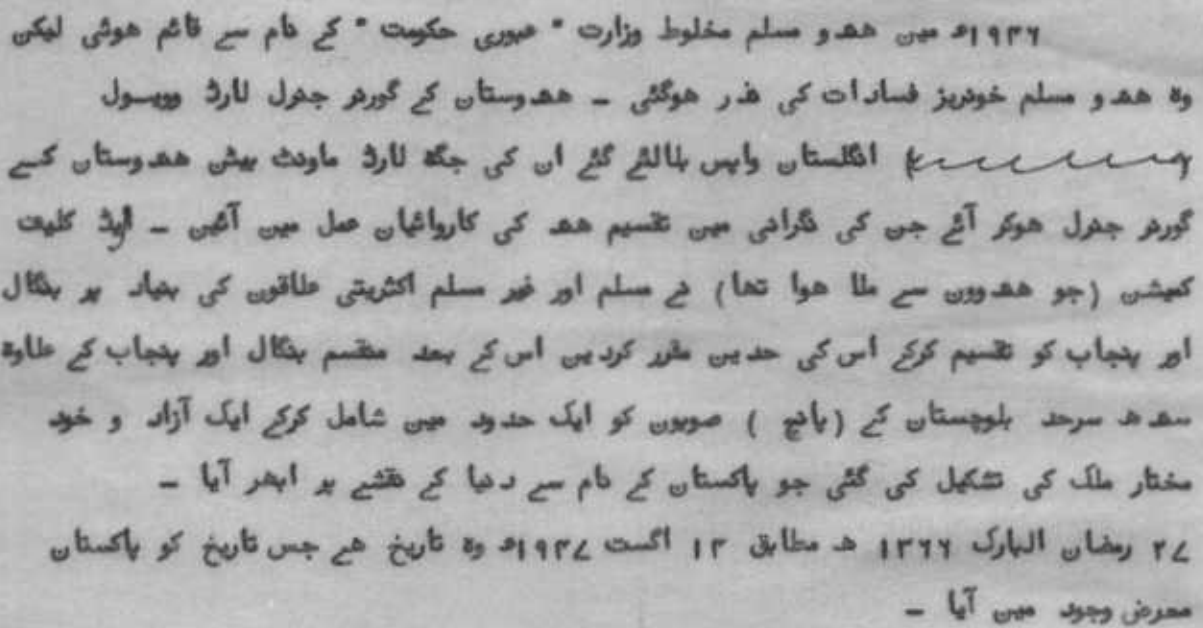 ۱۹۴۶ء مین ھندو مسلم مخلوط وزارت " عبوری حکومت " کے نام سے قائم ھوئی لیکن
وہ ھندو مسلم خونریز فسادات کی نذر ھوگئی ۔ ھندوستان کے گورنر جنرل لارڈ وویسول
انگلستان واپس بلالئے گئے ان کی جگہ لارڈ ماونٹ بیٹن ھندوستان کے
گورنر جنرل ھوکر آئے جن کی نگرانی مین تقسیم ھند کی کاروائیان عمل مین آئین ۔ کلیت
کمیشن (جو ھندوون سے ملا ھوا تھا) نے مسلم اور غیر مسلم اکثریتی علاقون کی بنیاد پر بنگال
اور پنجاب کو تقسیم کرکے اس کی حدین مقرر کردین اس کے بعد منقسم بنگال اور پنجاب کے علاوہ
سندھ سرحد بلوچستان کے (پانچ ) صوبون کو ایک حدود مین شامل کرکے ایک آزاد و خود
مختار ملک کی تشکیل کی گئی جو پاکستان کے نام سے دنیا کے نقشے پر ابھر آیا ۔
۲۷ رمضان المبارک ۱۳۶۶ ھ مطابق ۱۴ اگست ۱۹۴۷ء وہ تاریخ ھے جس تاریخ کو پاکستان
معرض وجود مین آیا ۔